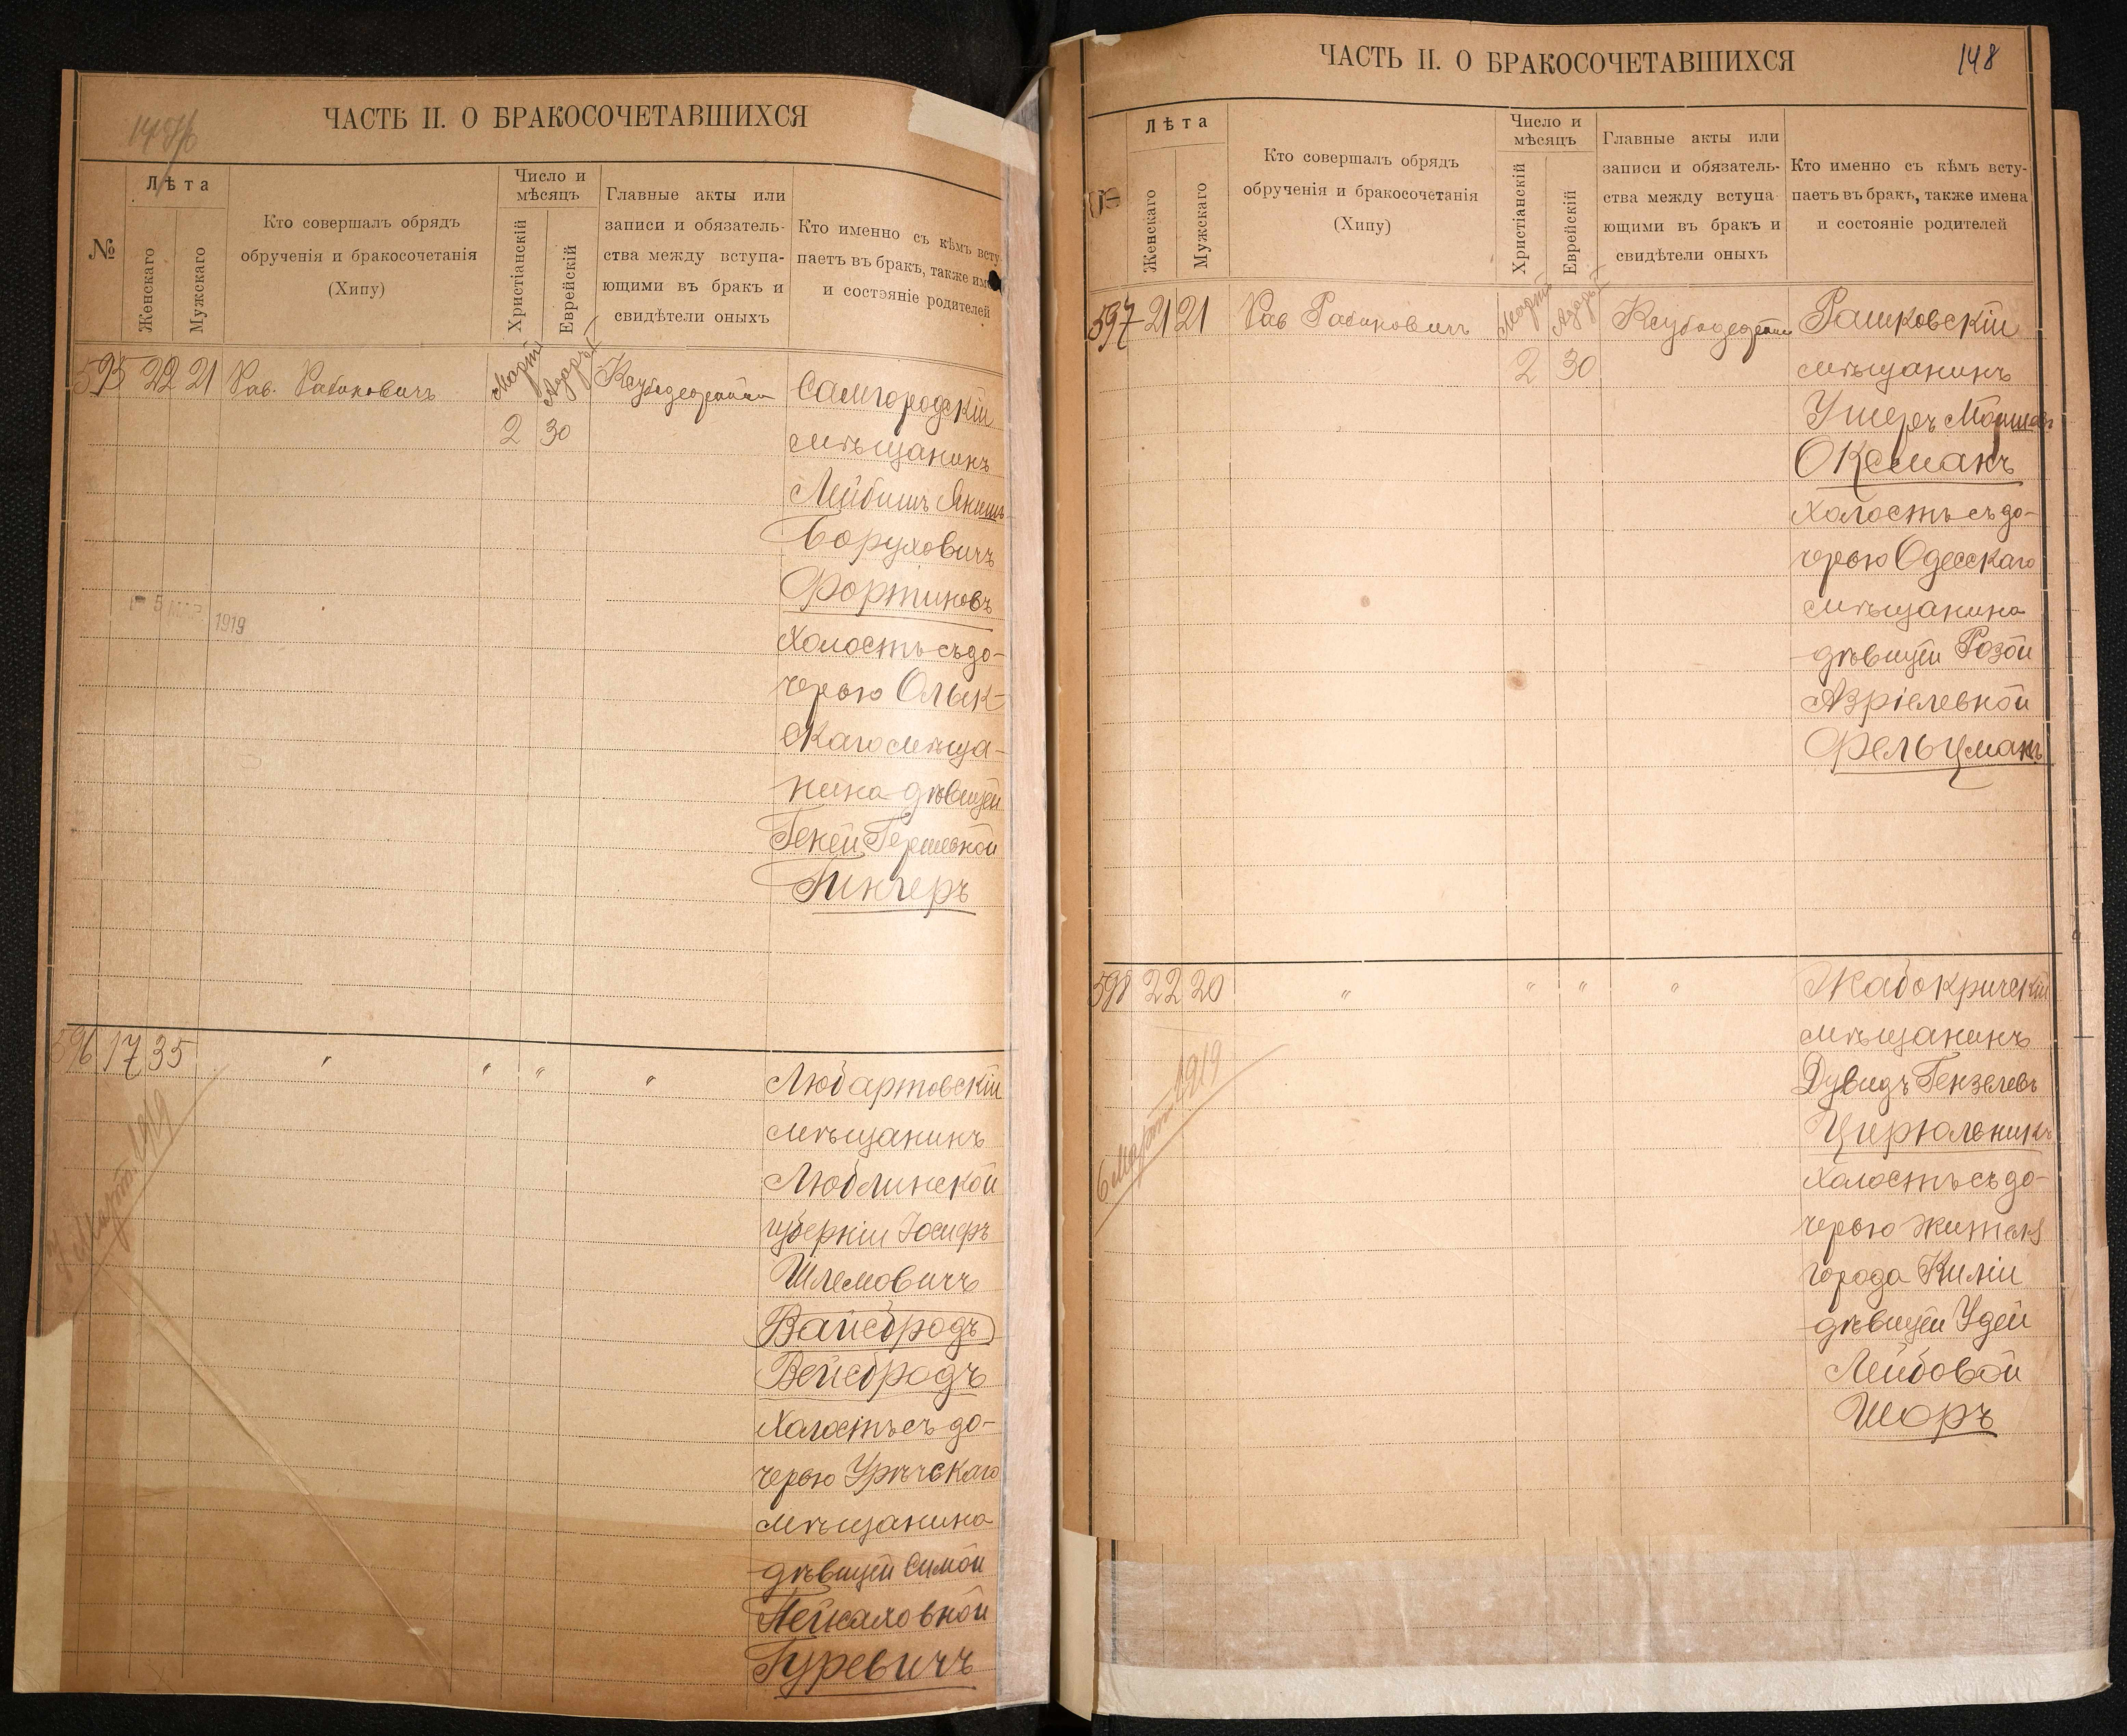 ЧАСТЬ II. О БРАКОСОЧЕТАВШИХСЯ
№
Лѣта
Женскаго
Мужскаго
Кто совершалъ обрядъ
обрученія и бракосочетанія
(Хипу)
Число и
мѣсяцъ
Христіанскій
Еврейскій
Главные акты или
записи и обязатель-
ства между вступа-
ющими въ бракъ и
свидѣтели оныхъ
Кто именно съ кѣмъ всту-
паетъ въ бракъ, также им
и состояніе родителей
595 22 21 Рав. Рабиновичъ
Мартъ
2
Адаръ I
30
Самгородскій
мѣщанинъ
Лейбишъ
Боруховичъ
Фортиновъ
холостъ съ до-
черью Олык-
скаго мѣща-
нина дѣвицей
Геней Гершевной
5 МАР 1919
596 17 35 " " " "
Март 1919
Любартовскій
мѣщанинъ
Люблинской
губерніи Іосифъ
Шлемовичъ
(Вайсбродъ)
Вейсбродъ
холостъ съ до-
черью
мѣщанина
дѣвицей Симой
Пейсаховной
Гуревичъ
ЧАСТЬ II. О БРАКОСОЧЕТАВШИХСЯ
148
Лѣта
Женскаго
Мужскаго
Кто совершалъ обрядъ
обрученія и бракосочетанія
(Хипу)
Число и
мѣсяцъ
Христіанскій
Еврейскій
Главные акты или
записи и обязатель-
ства между вступа-
ющими въ бракъ и
свидѣтели оныхъ
Кто именно съ кѣмъ всту-
паетъ въ бракъ, также имена
и состояніе родителей
597 21 21 Рав Рабиновичъ
Мартъ
2
Адаръ I
30
Рашковскій
мѣщанинъ
Ушеръ
Оксманъ
холостъ съ до-
черью Одесскаго
мѣщанина
дѣвицей Розой
Азріелевной
Фельцманъ
598 22 20 " " " "
6 Март 1919
Жабокричскій
мѣщанинъ
Дувидъ Гензелевъ
Цирюльникъ
холостъ съ до-
черью жителя
города Киліи
дѣвицей Удей
Лейбовой
Шоръ